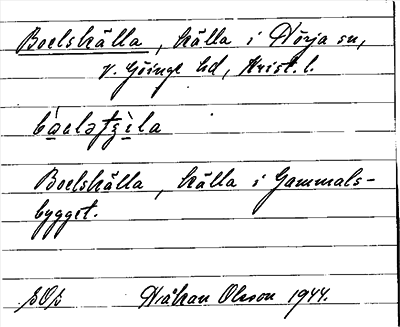 Boelskälla, källa i Nörja sn,
V. Göinge hd, Krist. l.
Boelskälla, källa i Gammals-
bygget.
Håkan Olsson 1944.